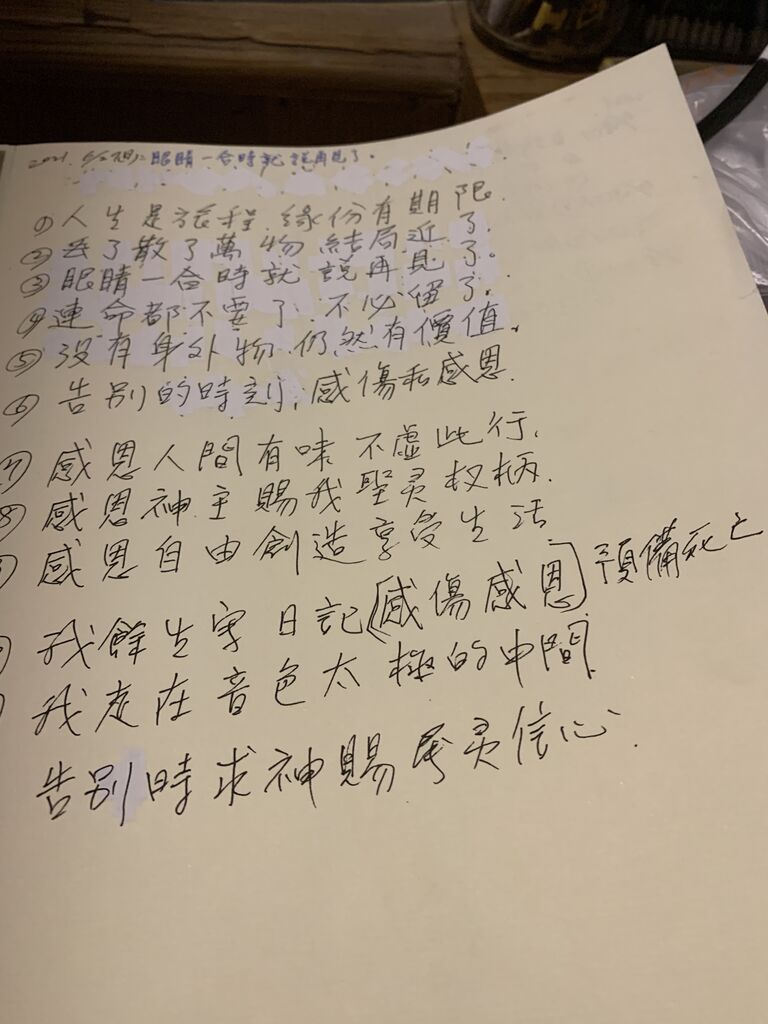 2021. 眼睛一合時就說再見了。
① 人生是旅程.緣份有期限.
② 丟了散了萬物結局近了.
③ 眼睛一合時就說再見了。
④ 連命都不要了.不必留了.
⑤ 沒有身外物.仍然有價值.
⑥ 告別的時刻.感傷和感恩.
⑦ 感恩人間有味不虛此行.
⑧ 感恩神主賜我聖灵权柄.
感恩自由創造享受生活
我餘生寫日記(感傷感恩)預備死亡
我走在音色太極的中間.
告別時求神賜 灵信心.